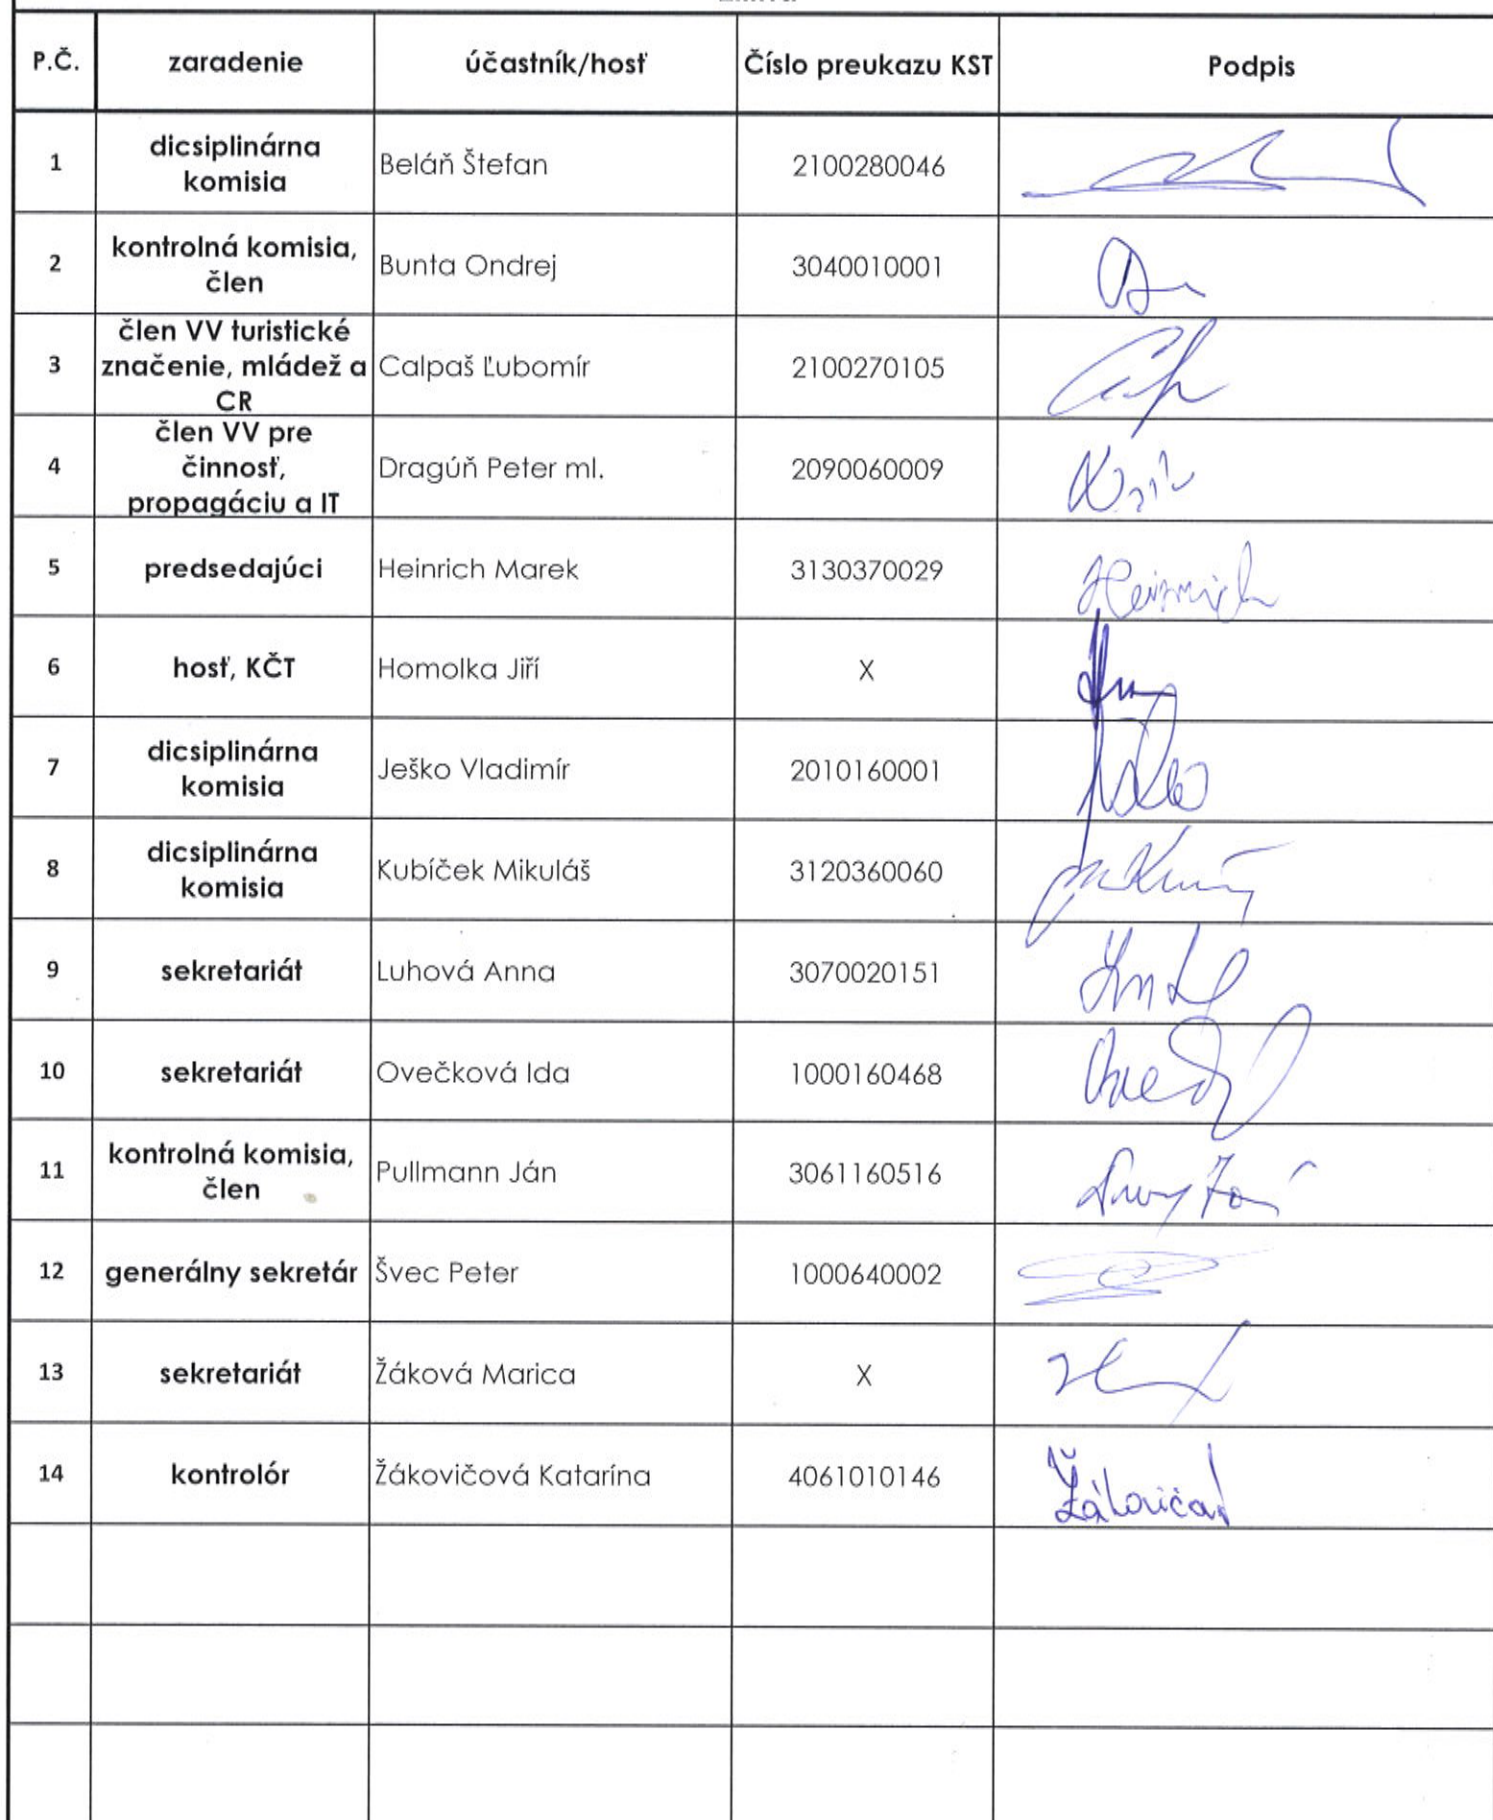 P.Č. zaradenie účastník/hosť Číslo preukazu KST Podpis
1 dicsiplinárna komisia Beláň Štefan 2100280046
2 kontrolná komisia, člen Bunta Ondrej 3040010001
3 člen VV turistické značenie, mládež a CR Calpaš Ľubomír 2100270105
4 člen VV pre činnosť, propagáciu a IT Dragúň Peter ml. 2090060009
5 predsedajúci Heinrich Marek 3130370029 Heinrich
6 hosť, KČT Homolka Jiří X
7 dicsiplinárna komisia Ješko Vladimír 2010160001
8 dicsiplinárna komisia Kubíček Mikuláš 3120360060
9 sekretariát Luhová Anna 3070020151
10 sekretariát Ovečková Ida 1000160468
11 kontrolná komisia, člen Pullmann Ján 3061160516
12 generálny sekretár Švec Peter 1000640002
13 sekretariát Žáková Marica X
14 kontrolór Žákovičová Katarína 4061010146